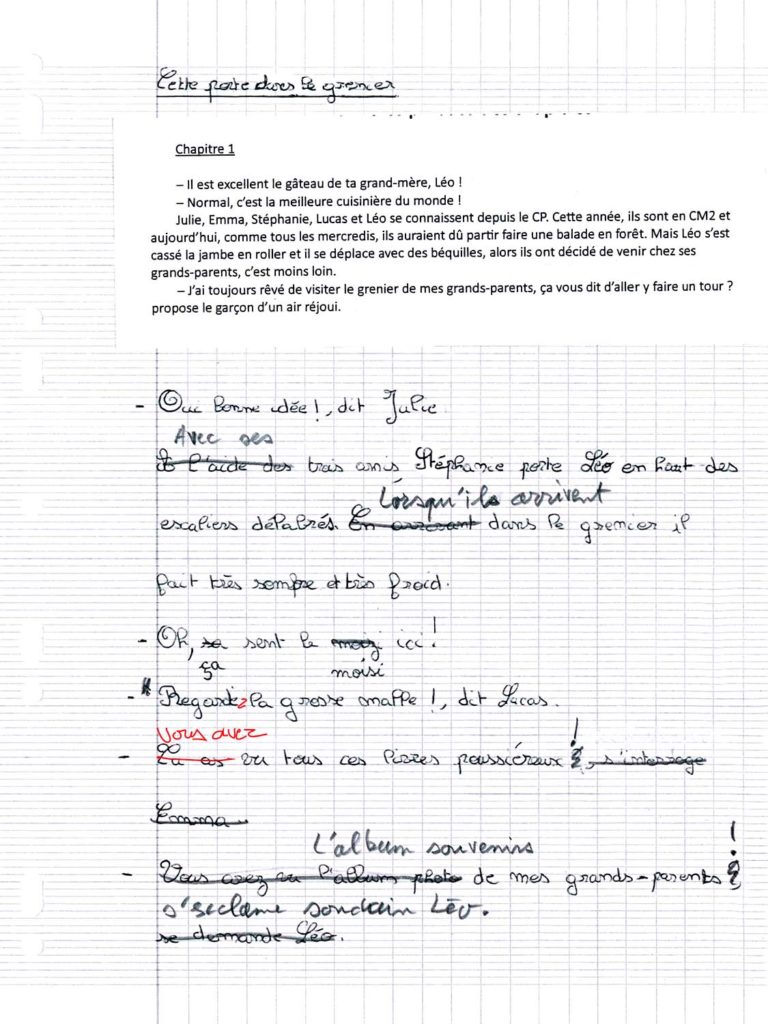 Cette porte dans le grenier
Chapitre 1
– Il est excellent le gâteau de ta grand-mère, Léo !
– Normal, c’est la meilleure cuisinière du monde !
Julie, Emma, Stéphanie, Lucas et Léo se connaissent depuis le CP. Cette année, ils sont en CM2 et
aujourd’hui, comme tous les mercredis, ils auraient dû partir faire une balade en forêt. Mais Léo s’est
cassé la jambe en roller et il se déplace avec des béquilles, alors ils ont décidé de venir chez ses
grands-parents, c’est moins loin.
– J’ai toujours rêvé de visiter le grenier de mes grands-parents, ça vous dit d’aller y faire un tour ?
propose le garçon d’un air réjoui.
- Oui bonne idée !, dit Julie
Avec ses
A l'aide des trois amis Stéphanie porte Léo en haut des
Lorsqu'ils arrivent
escaliers délabrés. En arrosant dans le grenier il
fait très sompre et très froid.
- Oh, sa sent le ici !
ça moisi
- Regardez la grosse malle !, dit Lucas.
Vous avez
- Tu as vu tous ces livres poussiéreux ! , s'interroge
Emma.
L'album souvenirs !
- Vous avez vu l'album photo de mes grands-parents
s'éclame soudain Léo.
se demande Léo.